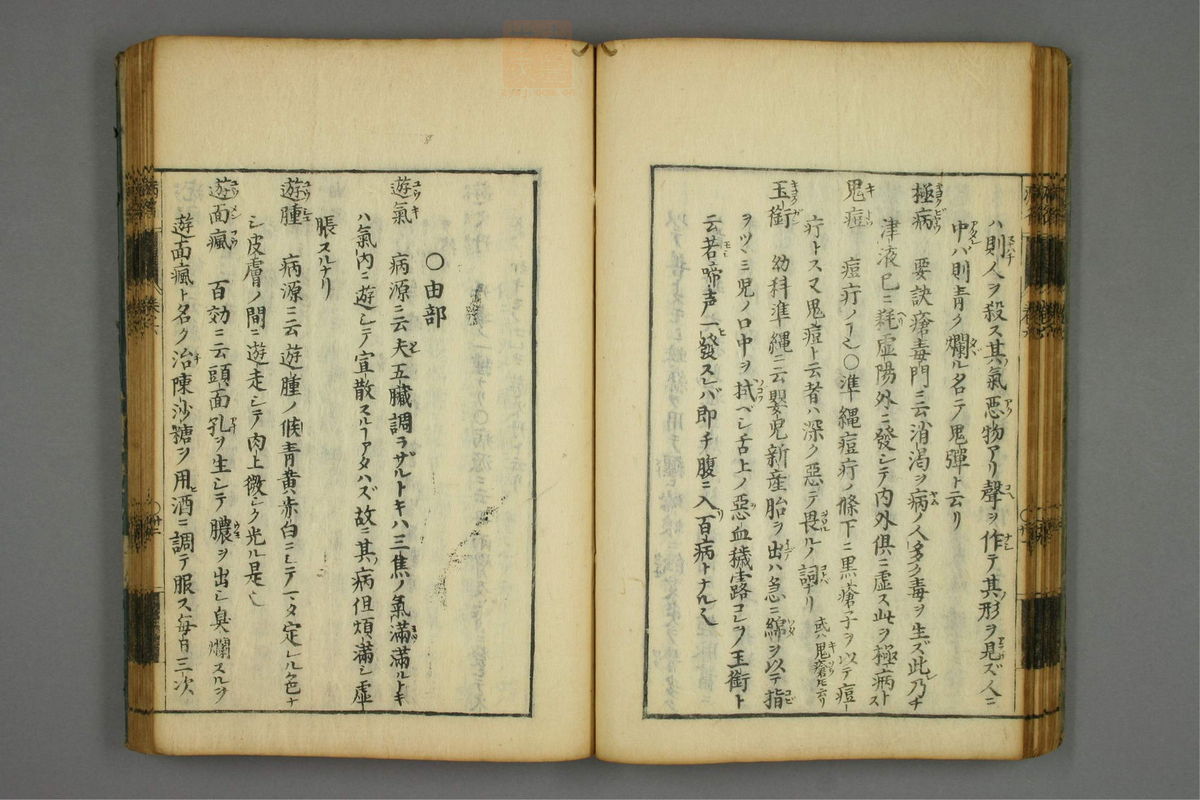 ハ則人ヲ殺ス其氣惡物アリ聲ヲ作テ其形ヲ見ズ人ニ
中バ則青ク爛ル名テ鬼彈ト云リ
極病 要訣瘡毒門ニ云消渇ヲ病ノ人多ク毒ヲ生ズ此乃チ
津液已ニ耗虚陽外ニ發シテ内外俱ニ虚ス此ヲ極病ス
鬼痘 痘疔ノ〇準縄痘疔ノ條下ニ黒瘡子ヲ以テ痘
疔トス又鬼痘ト云者ハ深ク惡テ畏ルノ詞ナリ 或ハ鬼瘡トモ云リ
玉銜 幼科準縄ニ云嬰兒新産胎ヲ出ハ急ニ綿ヲ以テ指
ヲツヽミ児ノ口中ヲ拭ベシ舌上ノ惡血穢露コレヲ玉銜ト
云若啼声一發スレバ即チ腹ニ入百病トナル
〇由部
遊氣 病源ニ云夫五臓調ラザルトキハ三焦ノ氣滿滿ルトキ
ハ氣内ニ遊シテ宣散スルアタハズ故ニ其病但煩滿シ虚
脹スルナリ
遊腫 病源ニ云遊腫ノ候青黄赤白ニシテ定レル色ナ
シ皮膚ノ間ニ遊走シテ肉上微シク光ル是
遊面瘋 百効ニ云頭面孔ヲ生シテ膿ヲ出シ臭爛スルヲ
遊面瘋ト名ク治陳沙糖ヲ用酒ニ調テ服ス毎日三次